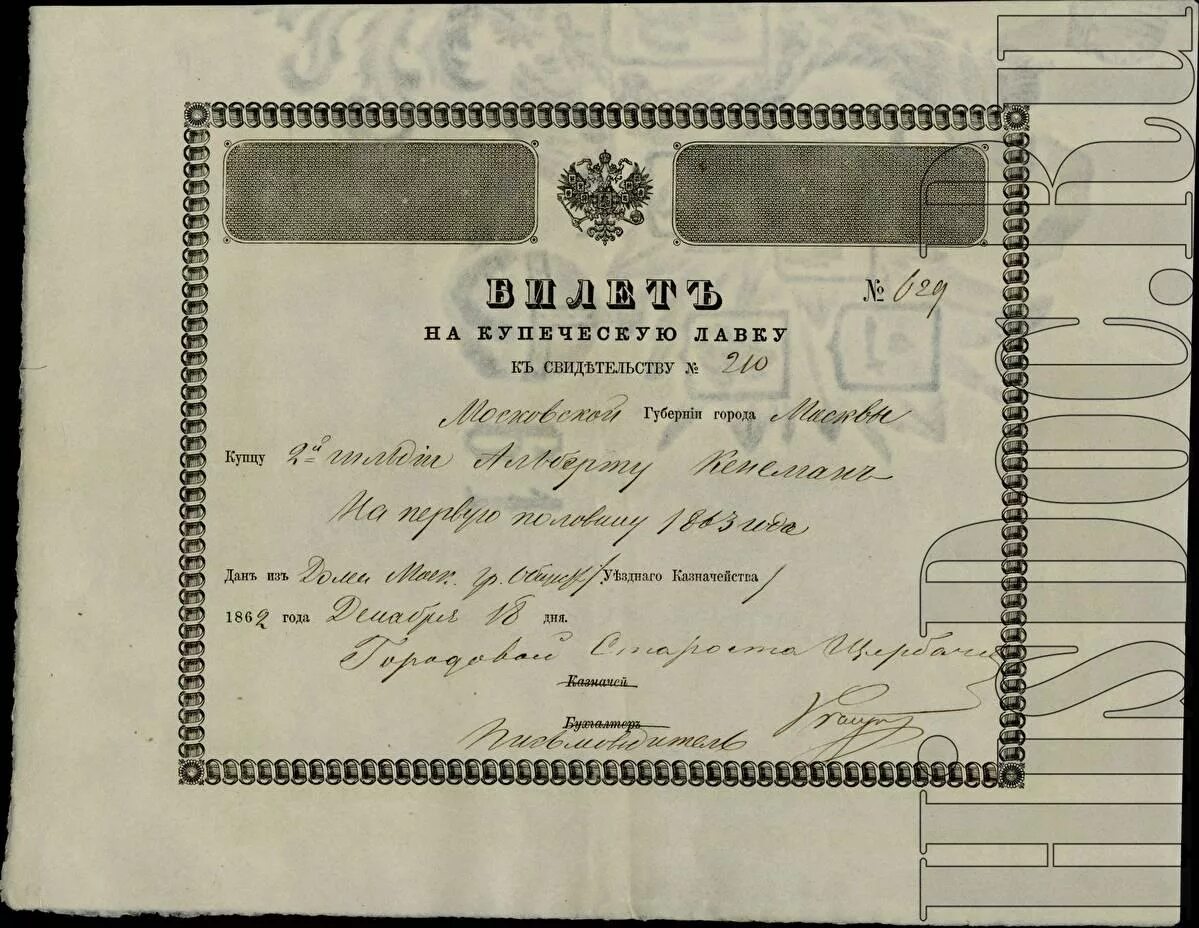 БИЛЕТЪ № 629
НА КУПЕЧЕСКУЮ ЛАВКУ
КЪ СВИДѢТЕЛЬСТВУ № 210
Московской Губерніи города Москвы
Купцу 2й гильдіи Альберту Кенеманъ
На первую половину 1863 года
Данъ изъ Дома Моск. гр. Общес. /Уѣзднаго Казначейства/
1862 года Декабря 18 дня.
Городовой Староста
Казначей
Бухгалтеръ
Письмоводитель
HISDOC.RU